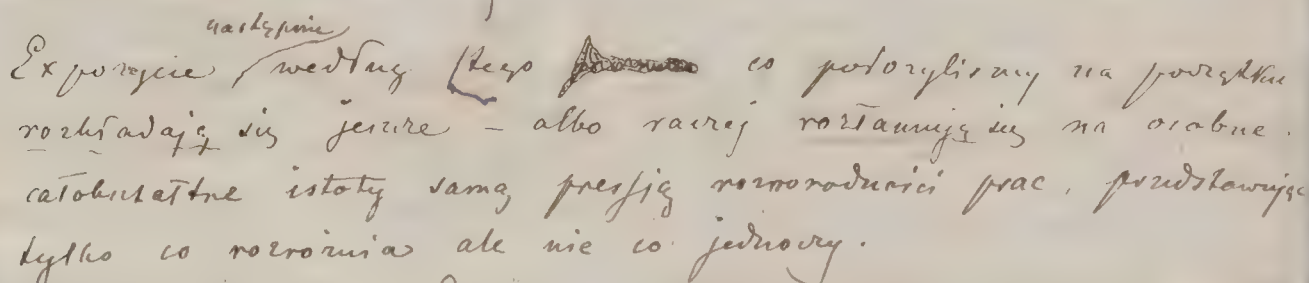 następnie
Expozycie według tego co położyliśmy na początku
rozkładają się jeszcze – albo raczej rozłamują się na osobne.
całokształtne istoty samą pressją roznorodności prac, przedstawując
tylko co rozróżnia ale nie co jednoczy.